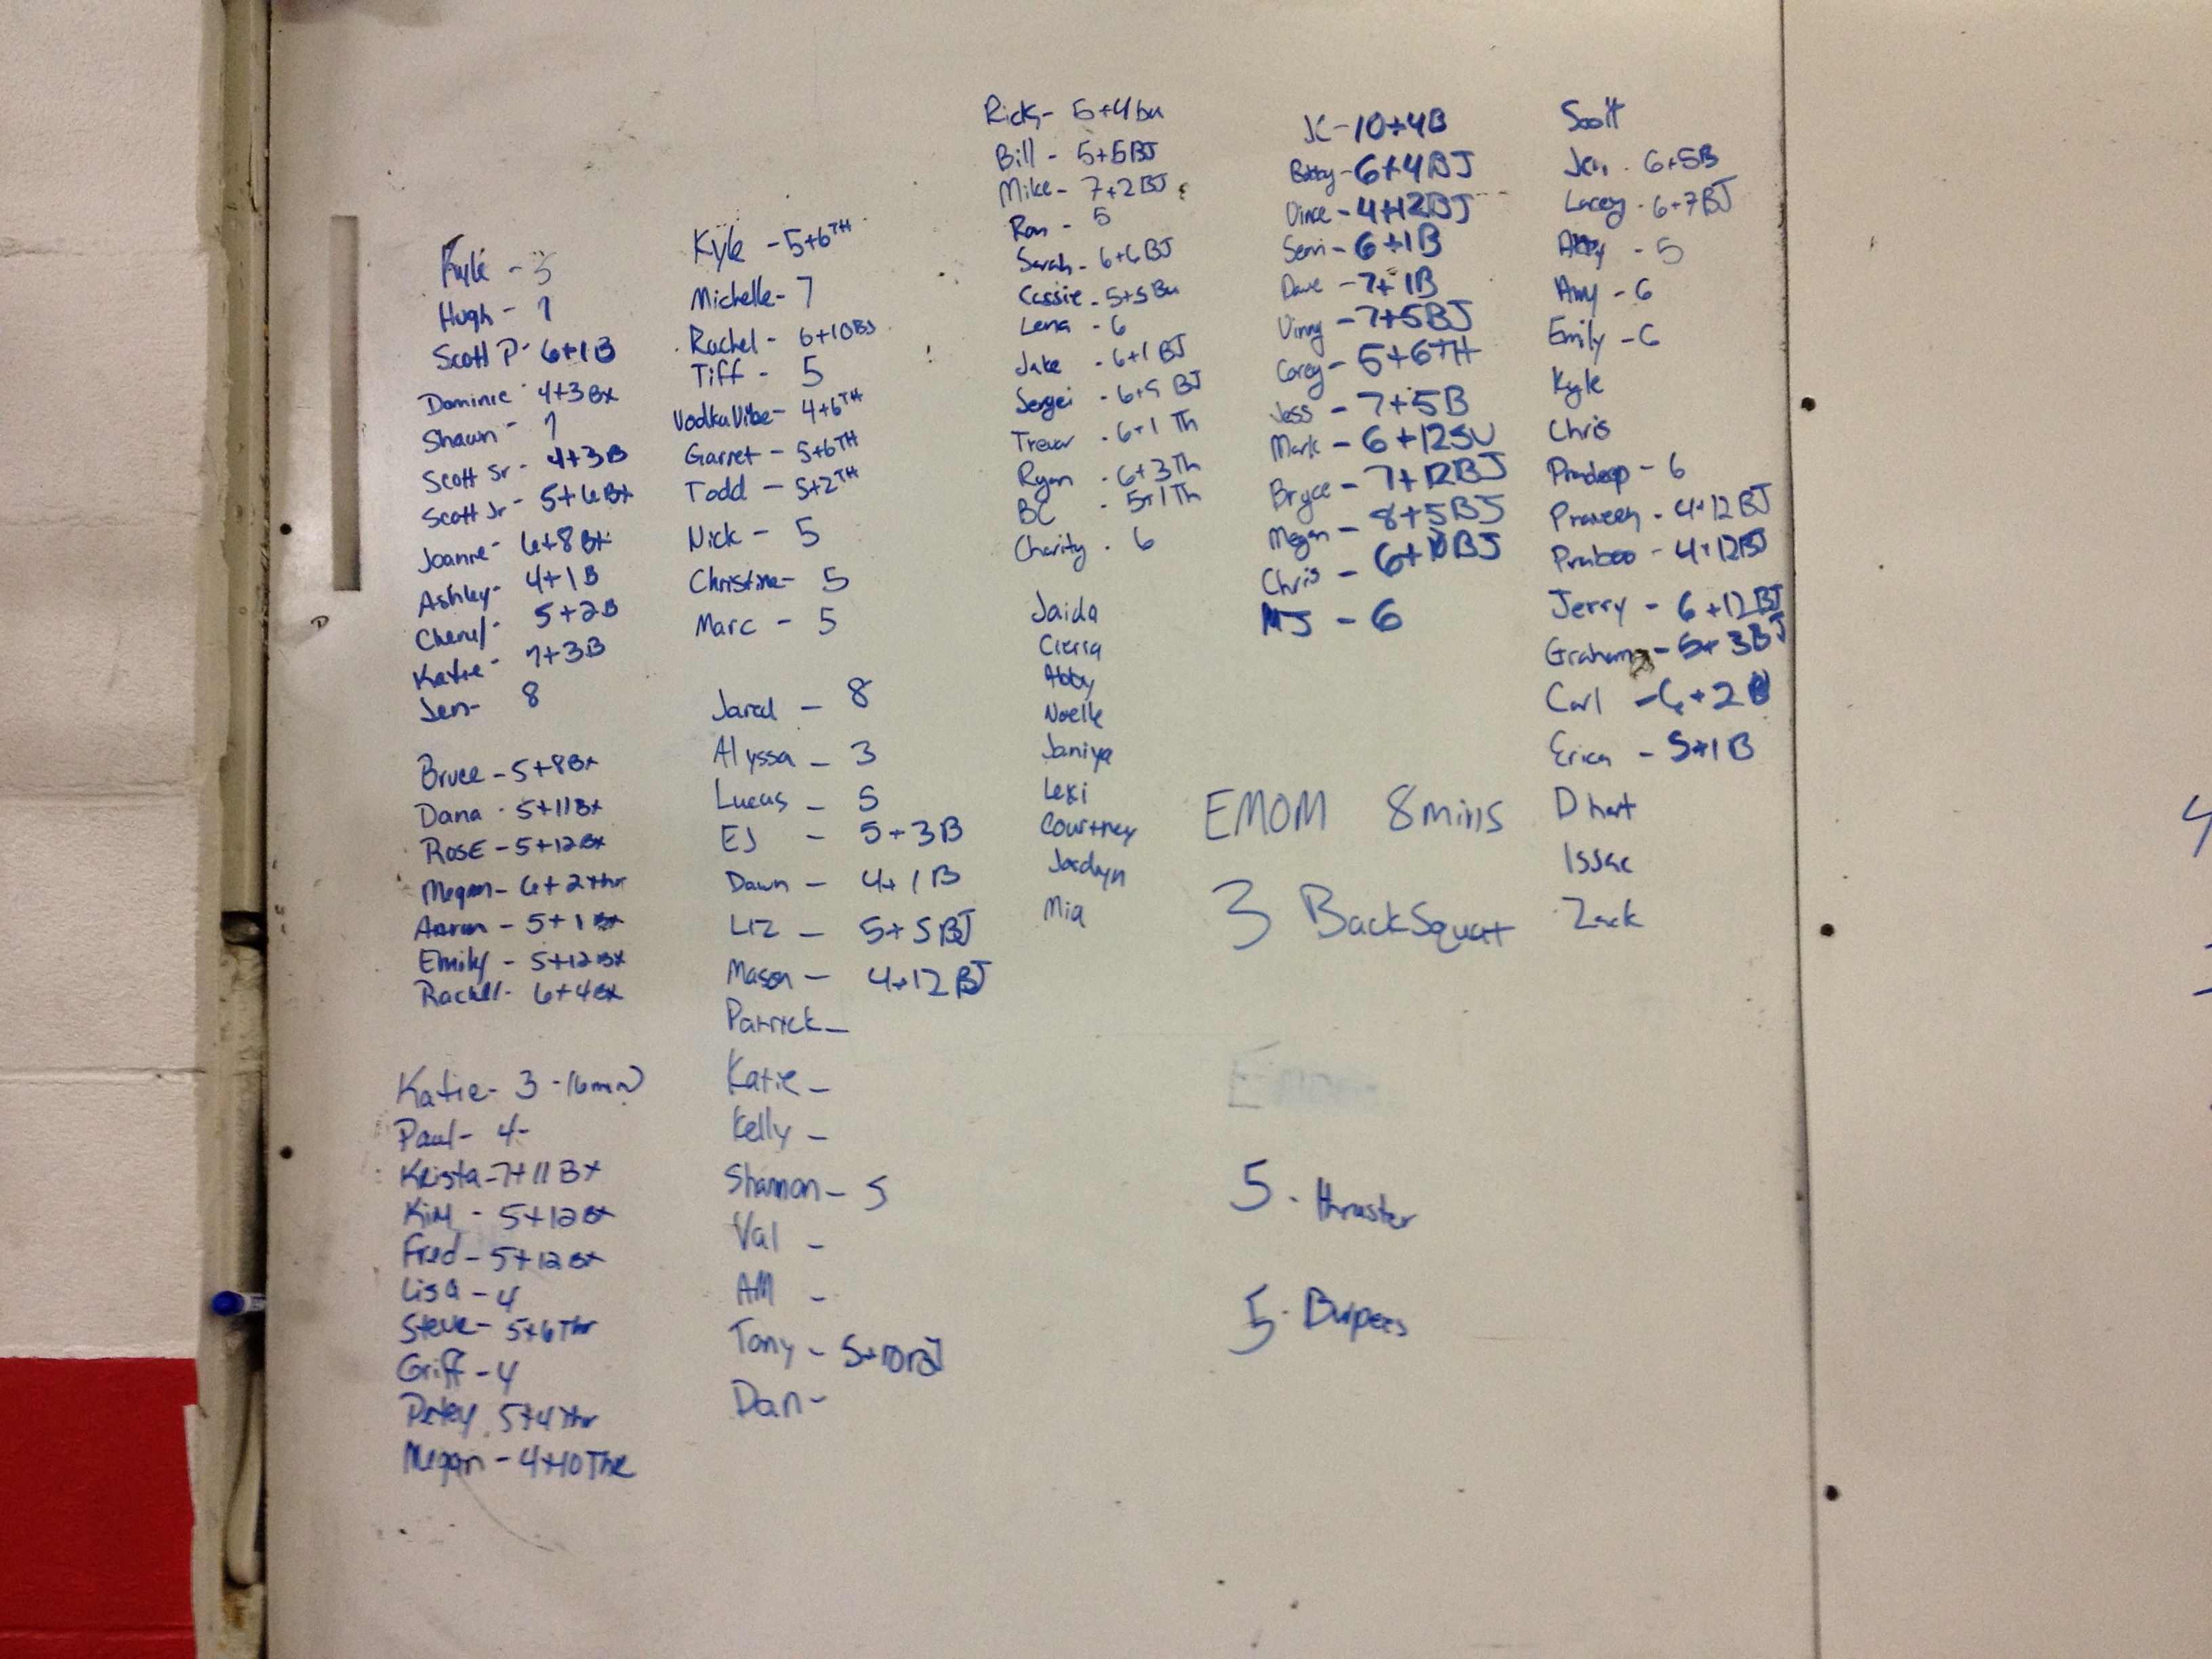 Kyle - 5
Hugh - 7
Scott P - 6+1B
Dominic 4+3Bx
Shawn - 7
Scott Sr - 4+3B
Scott Jr - 5+6Bx
Joanne - 6+8Bx
Ashley - 4+1B
Cheryl - 5+2B
Katie - 7+3B
Jen - 8
Bruce - 5+8Bx
Dana - 5+11Bx
RosE - 5+12Bx
Megan - 6+2thr
Aaron - 5+1Bx
Emily - 5+12Bx
Rachel - 6+4Bx
Katie - 3 - 16min
Paul - 4-
Krista - 7+11Bx
Kim - 5+12Bx
Fred - 5+12Bx
Lisa - 4
Steve - 5+6Thr
Griff - 4
Petey 5+4Thr
Megan - 4+10Thr
Kyle - 5+6TH
Michelle - 7
Rachel - 6+10BJ
Tiff - 5
VodkaVibe - 4+6TH
Garret - 5+6TH
Todd - 5+2TH
Nick - 5
Christine - 5
Marc - 5
Jared - 8
Alyssa - 3
Lucas - 5
EJ - 5+3B
Dawn - 4+1B
Liz - 5+5BJ
Mason - 4+12BJ
Patrick -
Katie -
Kelly -
Shannon - 5
Val -
AM -
Tony - 5+10BJ
Dan -
Rick - 5+4bu
Bill - 5+5BJ
Mike - 7+2BJ
Ron - 5
Sarah - 6+6BJ
Cassie - 5+5Bu
Lena - 6
Jake - 6+1BJ
Sergei - 6+5BJ
Trevor - 6+1Th
Ryan - 6+3Th
BC - 5+1Th
Charity - 6
Jaida
Cierra
Abby
Noelle
Janiya
Lexi
Courtney
Jordyn
Mia
JC - 10+4B
Bobby - 6+4BJ
Vince - 4+12BJ
Semi - 6+1B
Dave - 7+1B
Vinny - 7+5BJ
Corey - 5+6TH
Jess - 7+5B
Mark - 6+12SU
Bryce - 7+12BJ
Megan - 8+5BJ
Chris - 6+ BJ
MJ - 6
EMOM 8mins
3 BackSquat
5 - thruster
5 - Burpees
Scott
Jen - 6+5B
Lacey - 6+7BJ
Abby - 5
Amy - 6
Emily - 6
Kyle
Chris
Pradeep - 6
Praveen - 4+12BJ
Praboo - 4+12BJ
Jerry - 6+12BJ
Graham - 5+3BJ
Carl - 6+2B
Erica - 5+1B
Dhart
Issac
Zack